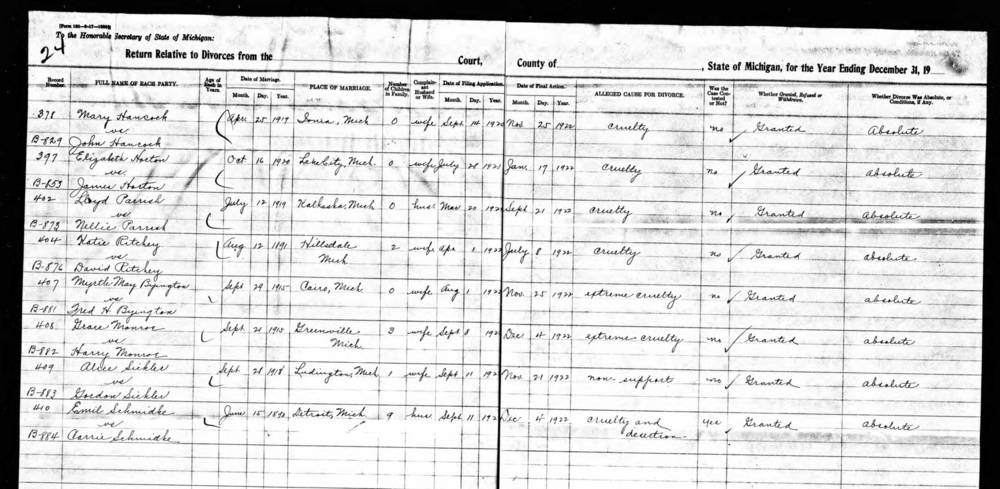 [Form 181—8-17—1500]
To the Honorable Secretary of State of Michigan:
24
Return Relative to Divorces from the Court, County of , State of Michigan, for the Year Ending December 31, 19
Record Number. FULL NAME OF EACH PARTY. Age of Each in Years. Date of Marriage. Month. Day. Year. PLACE OF MARRIAGE. Number of Children in Family. Complainant Husband or Wife. Date of Filing Application. Month. Day. Year. Date of Final Action. Month. Day. Year. ALLEGED CAUSE FOR DIVORCE. Was the Case Contested or Not? Whether Granted, Refused or Withdrawn. Whether Divorce Was Absolute, or Conditions, if Any.
378 Mary Hancock
vs Apr 25 1919 Ionia, Mich 0 wife Sept 14 Nov. 25 1922 cruelty no Granted Absolute
B-829 John Hancock
397 Elizabeth Horton
vs. Oct 16 1920 Lake City, Mich. 0 wife July 28 1921 Jan. 17 1922 cruelty no Granted absolute
B-853 James Horton
402 Lloyd Parrish
vs July 12 1919 Kalkaska, Mich 0 hus. Mar 20 Sept 21 1922 cruelty no Granted absolute
B-873 Nellie Parrish
404 Katie Ritchey
vs Aug 12 1891 Hillsdale Mich 2 wife Apr 1 July 8 1922 cruelty no Granted absolute
B-876 David Ritchey
407 Myrtle May Byington
vs Sept 29 1915 Cairo, Mich 0 wife Aug 1 Nov. 25 1922 extreme cruelty no Granted absolute
B-881 Fred H Byington
408 Grace Monroe
vs Sept. Greenville Mich. 3 wife Sept 8 Dec 4 1922 extreme cruelty no Granted absolute
B-882 Harry Monroe
409 Alice Sickler
vs Sept 28 1918 Ludington, Mich 1 wife Sept 11 Nov. 21 1922 non-support no Granted absolute
B-883 Gordon Sickler
410 Emil Schmidke
vs June 15 Detroit, Mich 9 hus Sept 11 Dec 4 1922 cruelty and desertion yes Granted absolute
B-884 Carrie Schmidke